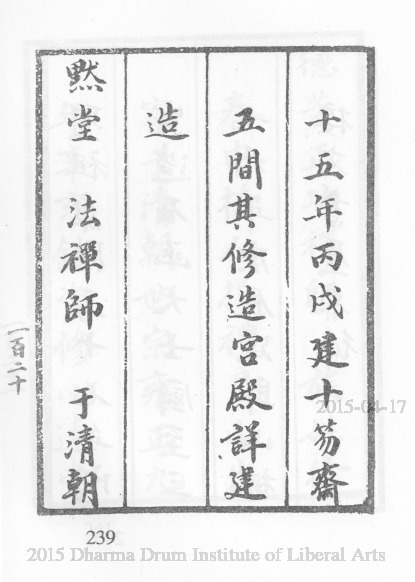 十五年丙戌建十笏齋
五間其修造宮殿詳建
造
黙堂 法禪師 于清朝
一百二十
239
2015-04-17
2015 Dharma Drum Institute of Liberal Arts